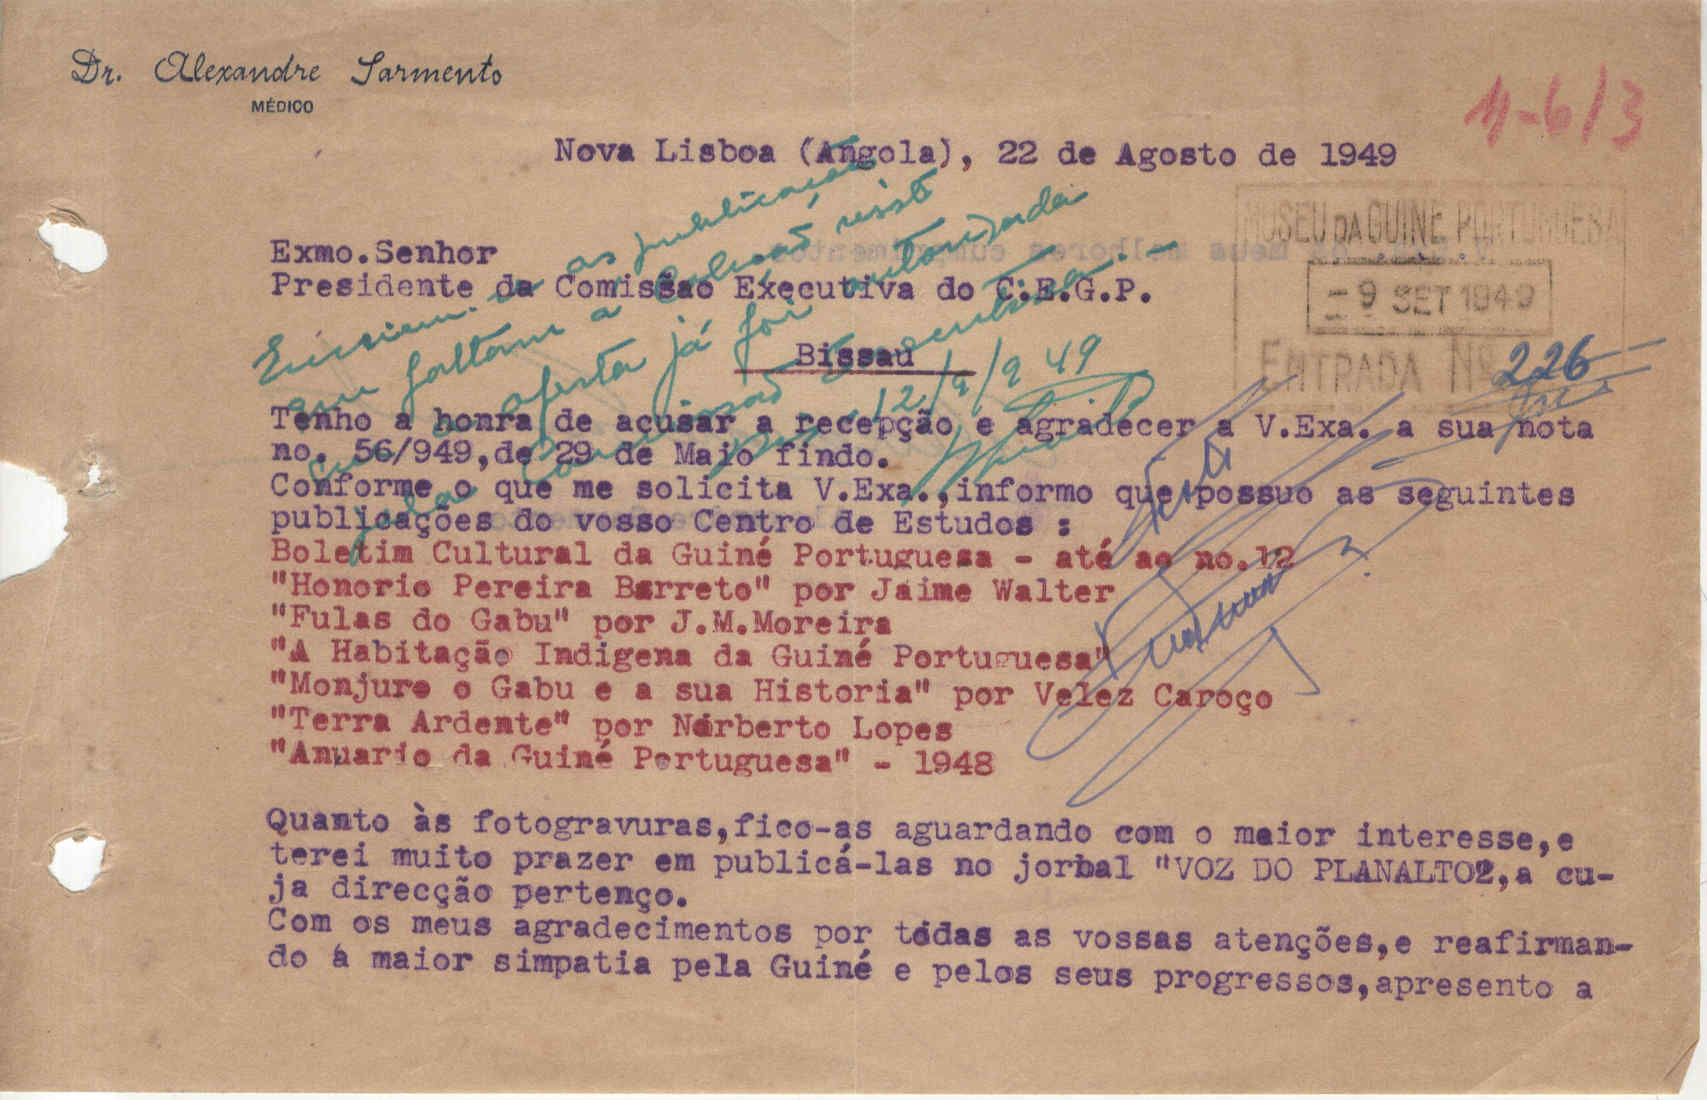 Dr. Alexandre Sarmento
MÉDICO
11-6/3
Nova Lisboa (Angola), 22 de Agosto de 1949
MUSEU DA GUINÉ PORTUGUESA
- 9 SET 1949
ENTRADA Nº 226
Exmo.Senhor
Presidente da Comissão Executiva do C.E.G.P.
Bissau
Enviem as publicações
que faltam a
oferta já foi autorizada
pela Comissão Executiva.
12/9/949
Tenho a honra de acusar a recepção e agradecer a V.Exa. a sua nota
no. 56/949,de 29 de Maio findo.
Conforme o que me solicita V.Exa.,informo que possuo as seguintes
publicações do vosso Centro de Estudos :
Boletim Cultural da Guiné Portuguesa - até ao no.12
"Honorio Pereira Barreto" por Jaime Walter
"Fulas do Gabu" por J.M.Moreira
"A Habitação Indigena da Guiné Portuguesa"
"Monjuro o Gabu e a sua Historia" por Velez Caroço
"Terra Ardente" por Norberto Lopes
"Anuario da Guiné Portuguesa" - 1948
Quanto às fotogravuras,fico-as aguardando com o maior interesse,e
terei muito prazer em publicá-las no jorbal "VOZ DO PLANALTO2,a cu-
ja direcção pertenço.
Com os meus agradecimentos por tódas as vossas atenções,e reafirman-
do a maior simpatia pela Guiné e pelos seus progressos,apresento a